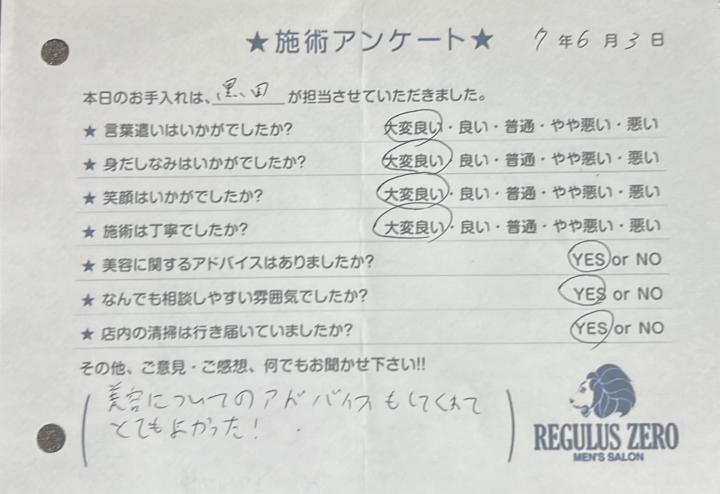 ★施術アンケート★ 7年6月3日
本日のお手入れは、黒田が担当させていただきました。
★ 言葉遣いはいかがでしたか? 大変良い・良い・普通・やや悪い・悪い
★ 身だしなみはいかがでしたか? 大変良い・良い・普通・やや悪い・悪い
★ 笑顔はいかがでしたか? 大変良い・良い・普通・やや悪い・悪い
★ 施術は丁寧でしたか? 大変良い・良い・普通・やや悪い・悪い
★ 美容に関するアドバイスはありましたか? YES or NO
★ なんでも相談しやすい雰囲気でしたか? YES or NO
★ 店内の清掃は行き届いていましたか? YES or NO
その他、ご意見・ご感想、何でもお聞かせ下さい!!
美容についてのアドバイスもしてくれて
とてもよかった!
REGULUS ZERO
MEN'S SALON